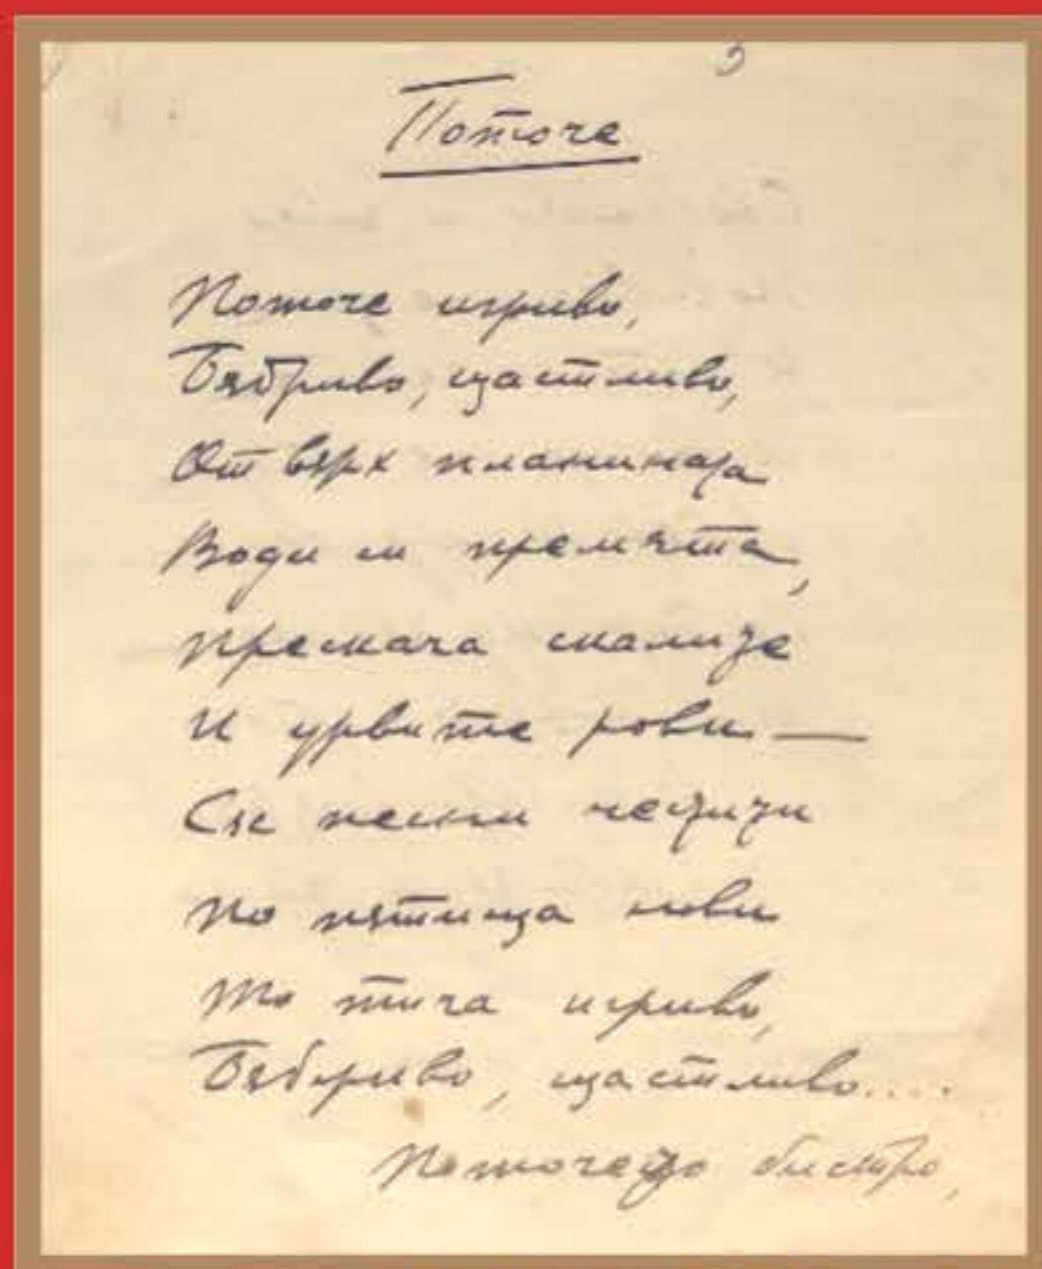 Поточе
Поточе игриво,
Бъбриво, щастливо,
От върх планината
Води си премята,
Прескача скалите
И урвите рови —
Със песни честити
По пътища нови
То тича игриво,
Бъбриво, щастливо....
Поточето бистро,